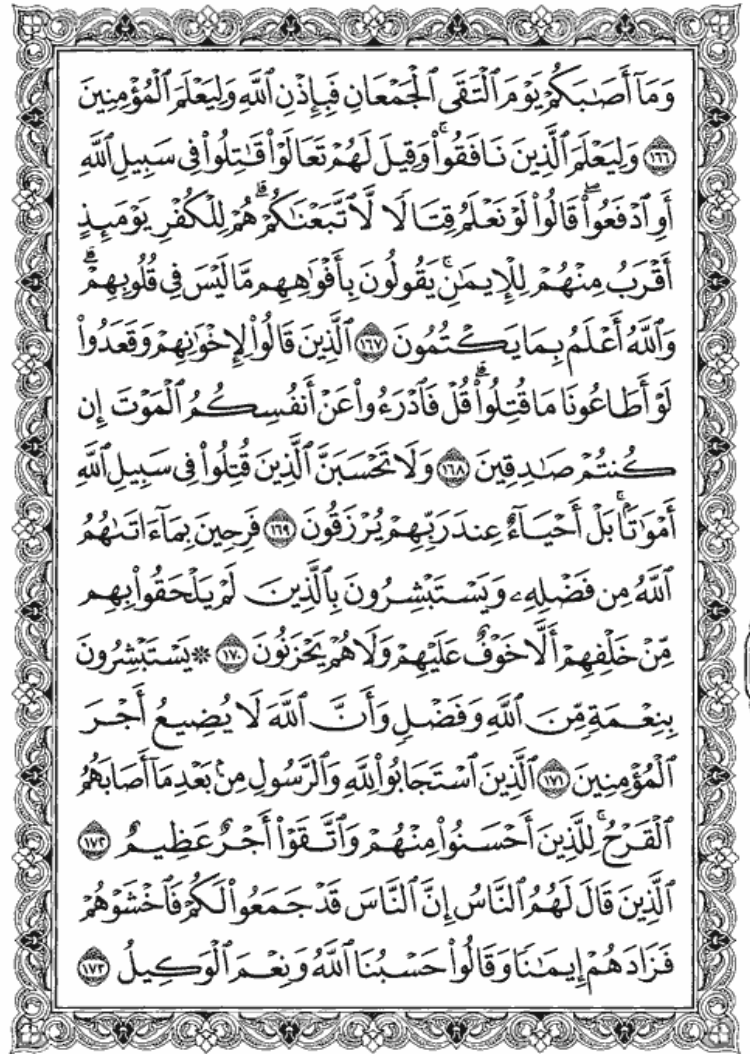 وَمَآ أَصَٰبَكُمْ يَوْمَ ٱلْتَقَى ٱلْجَمْعَانِ فَبِإِذْنِ ٱللَّهِ وَلِيَعْلَمَ ٱلْمُؤْمِنِينَ
١٦٦ وَلِيَعْلَمَ ٱلَّذِينَ نَافَقُوا۟ۚ وَقِيلَ لَهُمْ تَعَالَوْا۟ قَٰتِلُوا۟ فِى سَبِيلِ ٱللَّهِ
أَوِ ٱدْفَعُوا۟ۖ قَالُوا۟ لَوْ نَعْلَمُ قِتَالًا لَّٱتَّبَعْنَٰكُمْۗ هُمْ لِلْكُفْرِ يَوْمَئِذٍ
أَقْرَبُ مِنْهُمْ لِلْإِيمَٰنِۚ يَقُولُونَ بِأَفْوَٰهِهِم مَّا لَيْسَ فِى قُلُوبِهِمْۗ
وَٱللَّهُ أَعْلَمُ بِمَا يَكْتُمُونَ ١٦٧ ٱلَّذِينَ قَالُوا۟ لِإِخْوَٰنِهِمْ وَقَعَدُوا۟
لَوْ أَطَاعُونَا مَا قُتِلُوا۟ۗ قُلْ فَٱدْرَءُوا۟ عَنْ أَنفُسِكُمُ ٱلْمَوْتَ إِن
كُنتُمْ صَٰدِقِينَ ١٦٨ وَلَا تَحْسَبَنَّ ٱلَّذِينَ قُتِلُوا۟ فِى سَبِيلِ ٱللَّهِ
أَمْوَٰتًۢاۚ بَلْ أَحْيَآءٌ عِندَ رَبِّهِمْ يُرْزَقُونَ ١٦٩ فَرِحِينَ بِمَآ ءَاتَىٰهُمُ
ٱللَّهُ مِن فَضْلِهِۦ وَيَسْتَبْشِرُونَ بِٱلَّذِينَ لَمْ يَلْحَقُوا۟ بِهِم
مِّنْ خَلْفِهِمْ أَلَّا خَوْفٌ عَلَيْهِمْ وَلَا هُمْ يَحْزَنُونَ ١٧٠ ۞ يَسْتَبْشِرُونَ
بِنِعْمَةٍ مِّنَ ٱللَّهِ وَفَضْلٍ وَأَنَّ ٱللَّهَ لَا يُضِيعُ أَجْرَ
ٱلْمُؤْمِنِينَ ١٧١ ٱلَّذِينَ ٱسْتَجَابُوا۟ لِلَّهِ وَٱلرَّسُولِ مِنۢ بَعْدِ مَآ أَصَابَهُمُ
ٱلْقَرْحُۚ لِلَّذِينَ أَحْسَنُوا۟ مِنْهُمْ وَٱتَّقَوْا۟ أَجْرٌ عَظِيمٌ ١٧٢
ٱلَّذِينَ قَالَ لَهُمُ ٱلنَّاسُ إِنَّ ٱلنَّاسَ قَدْ جَمَعُوا۟ لَكُمْ فَٱخْشَوْهُمْ
فَزَادَهُمْ إِيمَٰنًا وَقَالُوا۟ حَسْبُنَا ٱللَّهُ وَنِعْمَ ٱلْوَكِيلُ ١٧٣